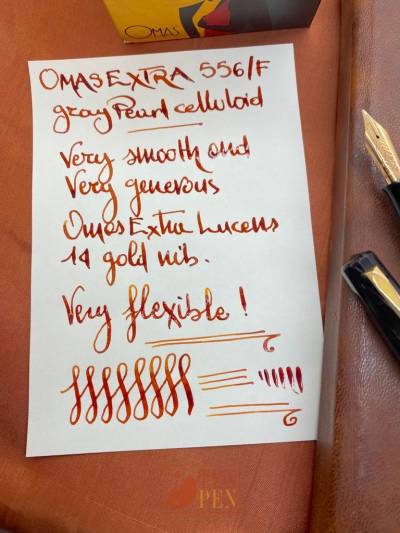 OMAS
OMAS EXTRA 556/F
gray Pearl celluloid
Very smooth and
Very generous
Omas Extra Lucens
14 gold nib.
Very flexible !
PEN